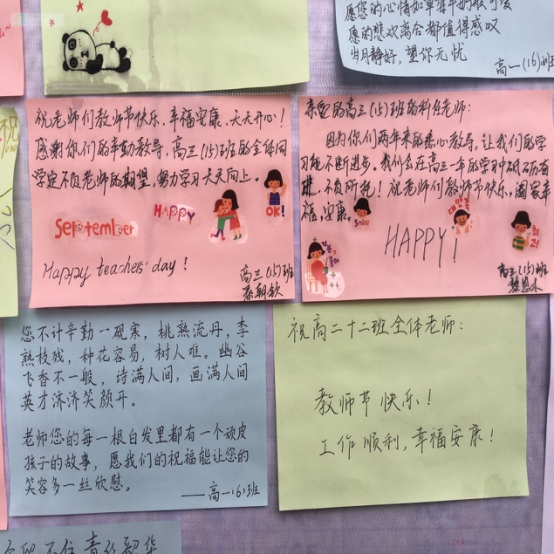 愿的悲欢离合都值得感叹
岁月静好，望你无忧
高一(16)班
祝老师们教师节快乐、幸福安康、天天开心！
感谢你们的辛勤教导，高三(15)班的全体同
学定不负老师的期望，努力学习天天向上。
September
HAPPY
OK!
Happy teacher day!
高三(15)班
亲爱的高三(15)班的科任老师：
因为你们两年来的悉心教导，让我们的学
习能不断进步。我们会在高三一年的学习中砥砺前
进，不负所托！祝老师们教师节快乐，阖家幸
福，安康。
HAPPY!
高三(15)班
您不计辛勤一砚寒，桃熟流丹，李
熟枝残，种花容易，树人难。幽谷
飞香不一般，诗满人间，画满人间
英才济济笑颜开。
老师您的每一根白发里都有一个顽皮
孩子的故事，愿我们的祝福能让您的
笑容多一丝欣慰。
——高一(6)班
祝高二十二班全体老师：
教师节快乐！
工作顺利，幸福安康！